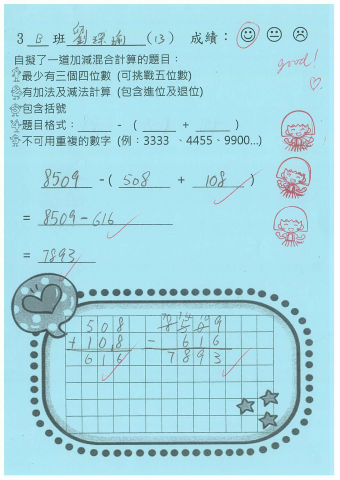 3 B 班 劉琛瑜 (13) 成績：
good!
自擬了一道加減混合計算的題目：
最少有三個四位數 (可挑戰五位數)
有加法及減法計算 (包含進位及退位)
包含括號
題目格式：______ - ( ______ + ______ )
不可用重複的數字 (例：3333 、4455、9900...)
8509 - ( 508 + 108 )
= 8509 - 616
= 7893
508
+ 108
616
8509
- 616
7893